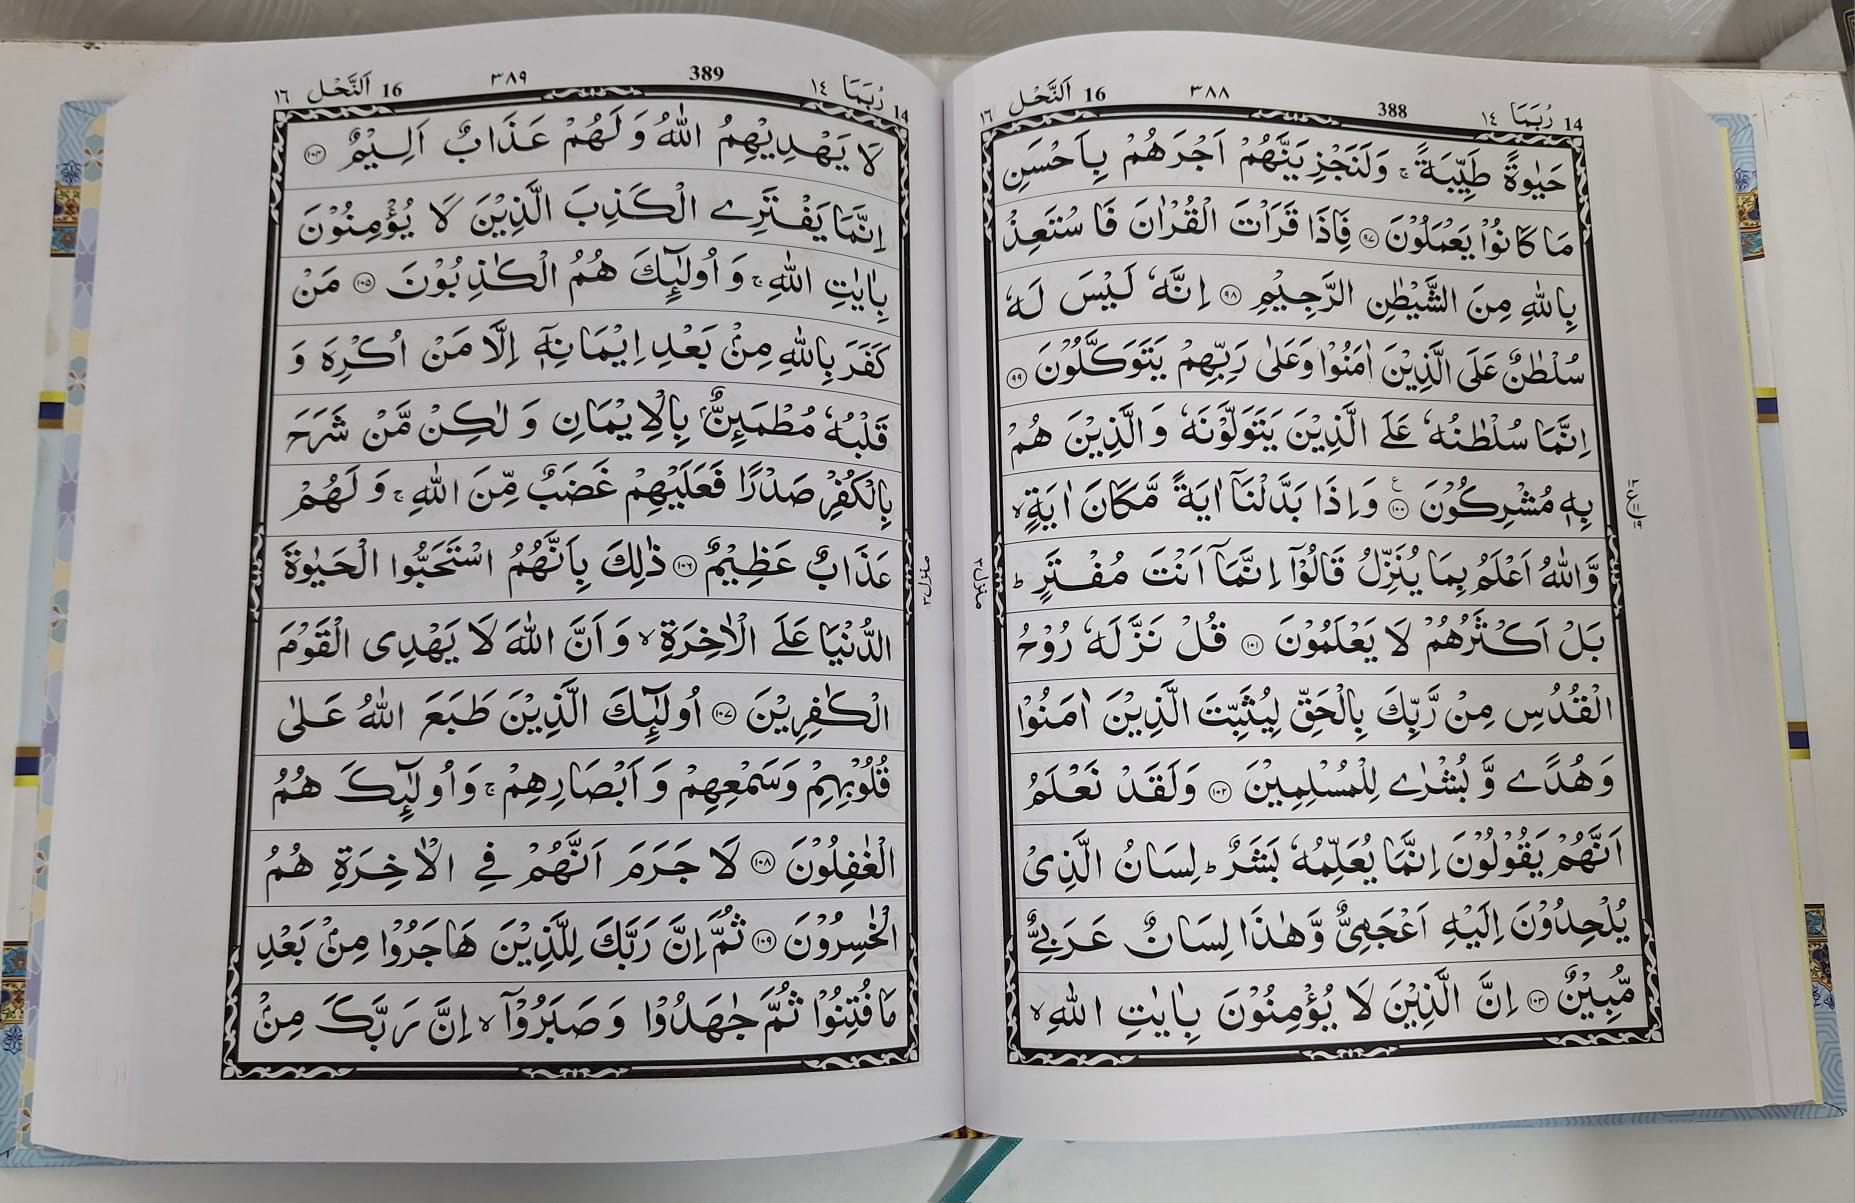 14 رُبَمَا ١٤
388
٣٨٨
16 اَلنَّحْل ١٦
حَيٰوةً طَيِّبَةً ۚ وَلَنَجْزِيَنَّهُمْ اَجْرَهُمْ بِاَحْسَنِ
مَا كَانُوْا يَعْمَلُوْنَ ﴿٩٧﴾ فَاِذَا قَرَاْتَ الْقُرْاٰنَ فَاسْتَعِذْ
بِاللّٰهِ مِنَ الشَّيْطٰنِ الرَّجِيْمِ ﴿٩٨﴾ اِنَّهٗ لَيْسَ لَهٗ
سُلْطٰنٌ عَلَى الَّذِيْنَ اٰمَنُوْا وَعَلٰى رَبِّهِمْ يَتَوَكَّلُوْنَ ﴿٩٩﴾
اِنَّمَا سُلْطٰنُهٗ عَلَى الَّذِيْنَ يَتَوَلَّوْنَهٗ وَالَّذِيْنَ هُمْ
بِهٖ مُشْرِكُوْنَ ﴿١٠٠﴾ ع وَاِذَا بَدَّلْنَاۤ اٰيَةً مَّكَانَ اٰيَةٍ ۙ
وَّاللّٰهُ اَعْلَمُ بِمَا يُنَزِّلُ قَالُوْۤا اِنَّمَاۤ اَنْتَ مُفْتَرٍ ؕ
بَلْ اَكْثَرُهُمْ لَا يَعْلَمُوْنَ ﴿١٠١﴾ قُلْ نَزَّلَهٗ رُوْحُ
الْقُدُسِ مِنْ رَّبِّكَ بِالْحَقِّ لِيُثَبِّتَ الَّذِيْنَ اٰمَنُوْا
وَهُدًى وَّبُشْرٰى لِلْمُسْلِمِيْنَ ﴿١٠٢﴾ وَلَقَدْ نَعْلَمُ
اَنَّهُمْ يَقُوْلُوْنَ اِنَّمَا يُعَلِّمُهٗ بَشَرٌ ؕ لِسَانُ الَّذِيْ
يُلْحِدُوْنَ اِلَيْهِ اَعْجَمِيٌّ وَّهٰذَا لِسَانٌ عَرَبِيٌّ
مُّبِيْنٌ ﴿١٠٣﴾ اِنَّ الَّذِيْنَ لَا يُؤْمِنُوْنَ بِاٰيٰتِ اللّٰهِ ۙ
منزل ٣
14 رُبَمَا ١٤
389
٣٨٩
16 اَلنَّحْل ١٦
لَا يَهْدِيْهِمُ اللّٰهُ وَلَهُمْ عَذَابٌ اَلِيْمٌ ﴿١٠٤﴾
اِنَّمَا يَفْتَرِي الْكَذِبَ الَّذِيْنَ لَا يُؤْمِنُوْنَ
بِاٰيٰتِ اللّٰهِ ۚ وَاُولٰٓئِكَ هُمُ الْكٰذِبُوْنَ ﴿١٠٥﴾ مَنْ
كَفَرَ بِاللّٰهِ مِنْۢ بَعْدِ اِيْمَانِهٖۤ اِلَّا مَنْ اُكْرِهَ وَ
قَلْبُهٗ مُطْمَئِنٌّۢ بِالْاِيْمَانِ وَلٰكِنْ مَّنْ شَرَحَ
بِالْكُفْرِ صَدْرًا فَعَلَيْهِمْ غَضَبٌ مِّنَ اللّٰهِ ۚ وَلَهُمْ
عَذَابٌ عَظِيْمٌ ﴿١٠٦﴾ ذٰلِكَ بِاَنَّهُمُ اسْتَحَبُّوا الْحَيٰوةَ
الدُّنْيَا عَلَى الْاٰخِرَةِ ۙ وَاَنَّ اللّٰهَ لَا يَهْدِى الْقَوْمَ
الْكٰفِرِيْنَ ﴿١٠٧﴾ اُولٰٓئِكَ الَّذِيْنَ طَبَعَ اللّٰهُ عَلٰى
قُلُوْبِهِمْ وَسَمْعِهِمْ وَاَبْصَارِهِمْ ۚ وَاُولٰٓئِكَ هُمُ
الْغٰفِلُوْنَ ﴿١٠٨﴾ لَا جَرَمَ اَنَّهُمْ فِي الْاٰخِرَةِ هُمُ
الْخٰسِرُوْنَ ﴿١٠٩﴾ ثُمَّ اِنَّ رَبَّكَ لِلَّذِيْنَ هَاجَرُوْا مِنْۢ بَعْدِ
مَا فُتِنُوْا ثُمَّ جٰهَدُوْا وَصَبَرُوْۤا ۙ اِنَّ رَبَّكَ مِنْۢ
منزل ٣